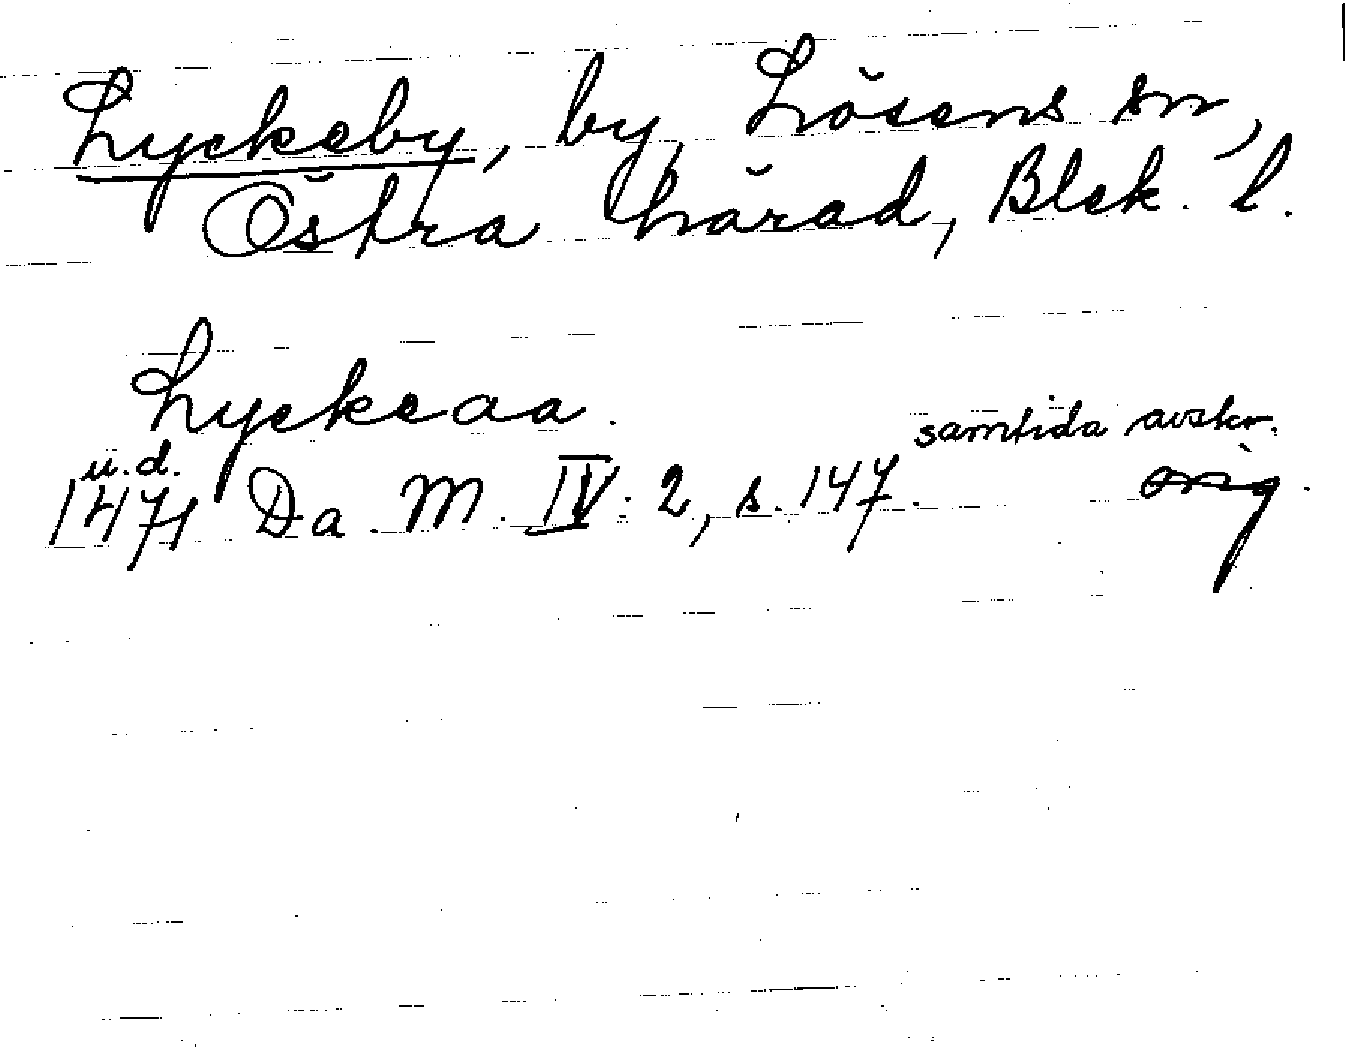 Lyckeby, by, Lösens sn,
Östra härad, Blek. l.
Lyckeaa.
u.d. samtida avskr.
1471 Da. M. IV: 2, s. 147. orig.